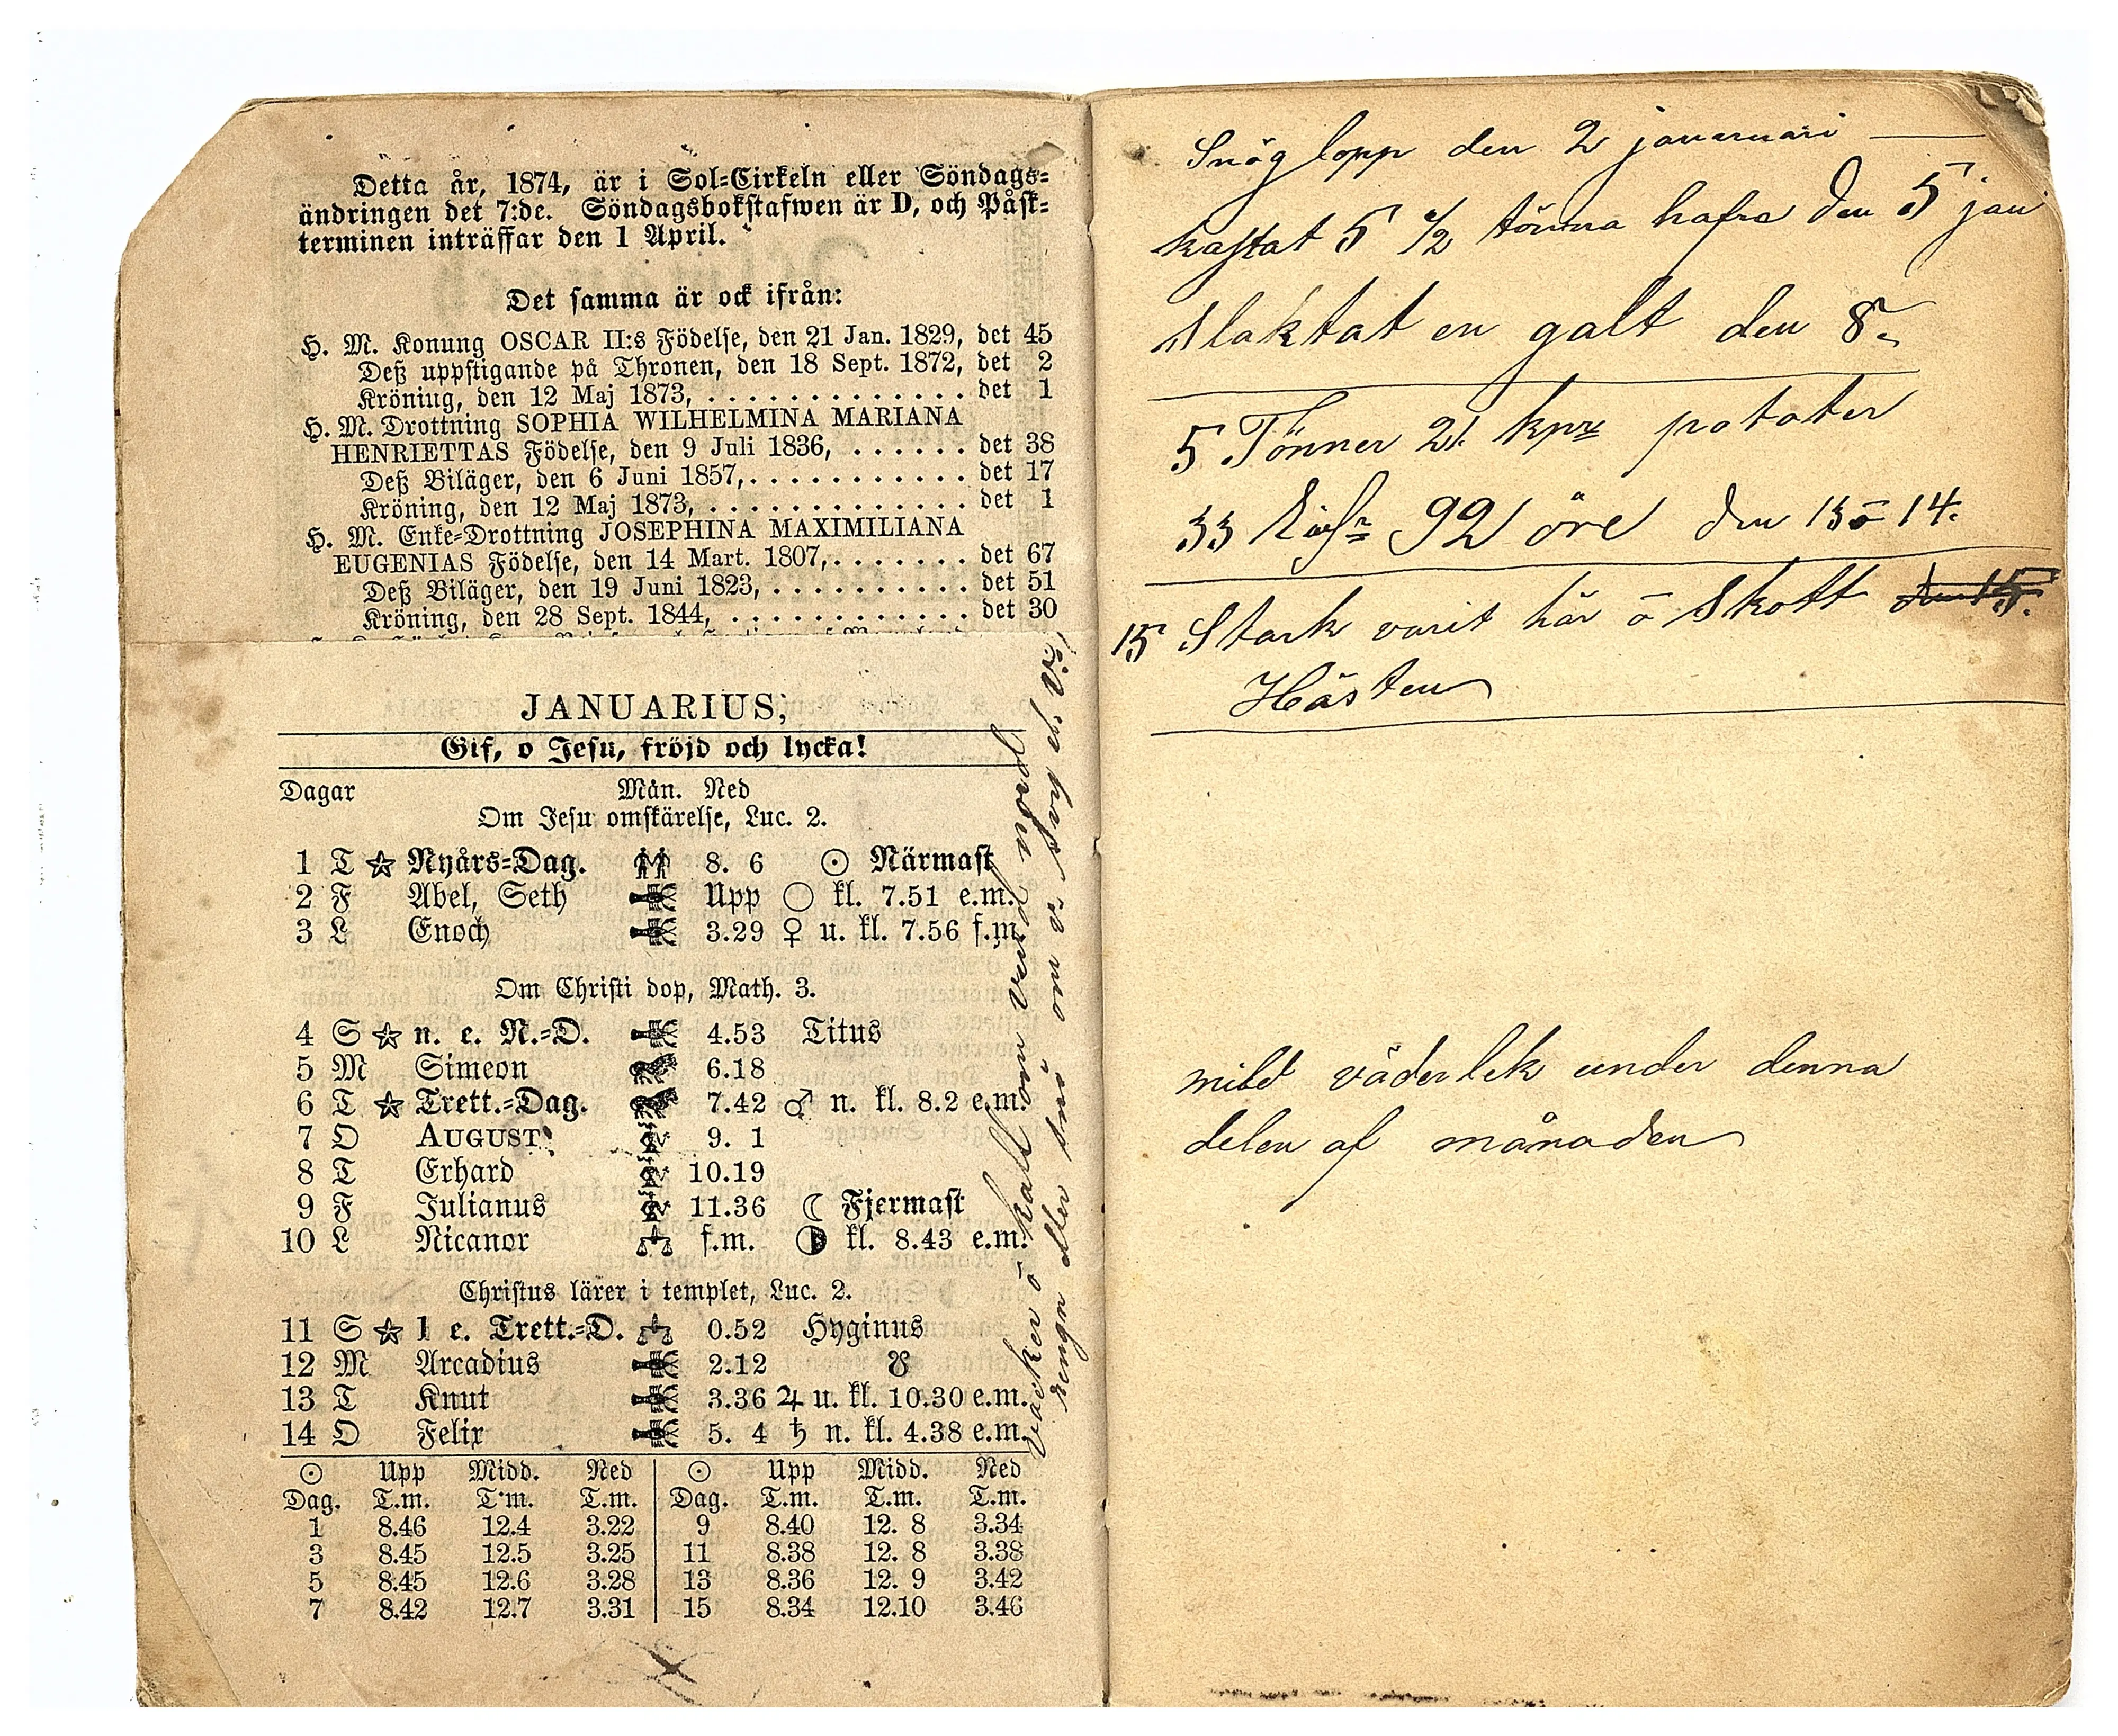 Detta år, 1874, är i Sol-Cirkeln eller Söndags-
ändringen det 7:de. Söndagsbokstafwen är D, och Påsk-
terminen inträffar den 1 April.
Det samma är ock ifrån:
H. M. Konung OSCAR II:s Födelse, den 21 Jan. 1829, det 45
Deß uppstigande på Thronen, den 18 Sept. 1872, det 2
Kröning, den 12 Maj 1873, . . . . . . . . . . . . . det 1
H. M. Drottning SOPHIA WILHELMINA MARIANA
HENRIETTAS Födelse, den 9 Juli 1836, . . . . . . det 38
Deß Biläger, den 6 Juni 1857, . . . . . . . . . . . det 17
Kröning, den 12 Maj 1873, . . . . . . . . . . . . . det 1
H. M. Enke-Drottning JOSEPHINA MAXIMILIANA
EUGENIAS Födelse, den 14 Mart. 1807, . . . . . . . det 67
Deß Biläger, den 19 Juni 1823, . . . . . . . . . . det 51
Kröning, den 28 Sept. 1844, . . . . . . . . . . . . det 30
JANUARIUS,
Gif, o Jesu, fröjd och lycka!
Dagar Mån. Ned
Om Jesu omskärelse, Luc. 2.
1 T ☆ Nyårs-Dag. 8. 6 ☉ Närmast
2 F Abel, Seth Upp ○ kl. 7.51 e.m.
3 L Enoch 3.29 ♀ u. kl. 7.56 f.m.
Om Christi dop, Math. 3.
4 S ☆ n. e. N.-D. 4.53 Titus
5 M Simeon 6.18
6 T ☆ Trett.-Dag. 7.42 ♂ n. kl. 8.2 e.m.
7 O AUGUST. 9. 1
8 T Erhard 10.19
9 F Julianus 11.36 ☾ Fjermast
10 L Nicanor f.m. ◑ kl. 8.43 e.m.
Christus lärer i templet, Luc. 2.
11 S ☆ 1 e. Trett.-D. 0.52 Hyginus
12 M Arcadius 2.12 ☋
13 T Knut 3.36 ♃ u. kl. 10.30 e.m.
14 O Felix 5. 4 ♄ n. kl. 4.38 e.m.
☉ Upp Midd. Ned ☉ Upp Midd. Ned
Dag. T.m. T.m. T.m. Dag. T.m. T.m. T.m.
1 8.46 12.4 3.22 9 8.40 12. 8 3.34
3 8.45 12.5 3.25 11 8.38 12. 8 3.38
5 8.45 12.6 3.28 13 8.36 12. 9 3.42
7 8.42 12.7 3.31 15 8.34 12.10 3.46
vacker ō kallt om vind nord
rengn eller snö om v.
Snöglopp den 2 januari
kastat 5 1/2 tönna hafra den 5 jan
Slaktat en galt den 8.
5 Tönner 21 kpr potater
33 92 öre den 13 ō 14.
15 Stark varit här ō Skott den 15.
Hästen
mild väderlek under denna
delen af månaden